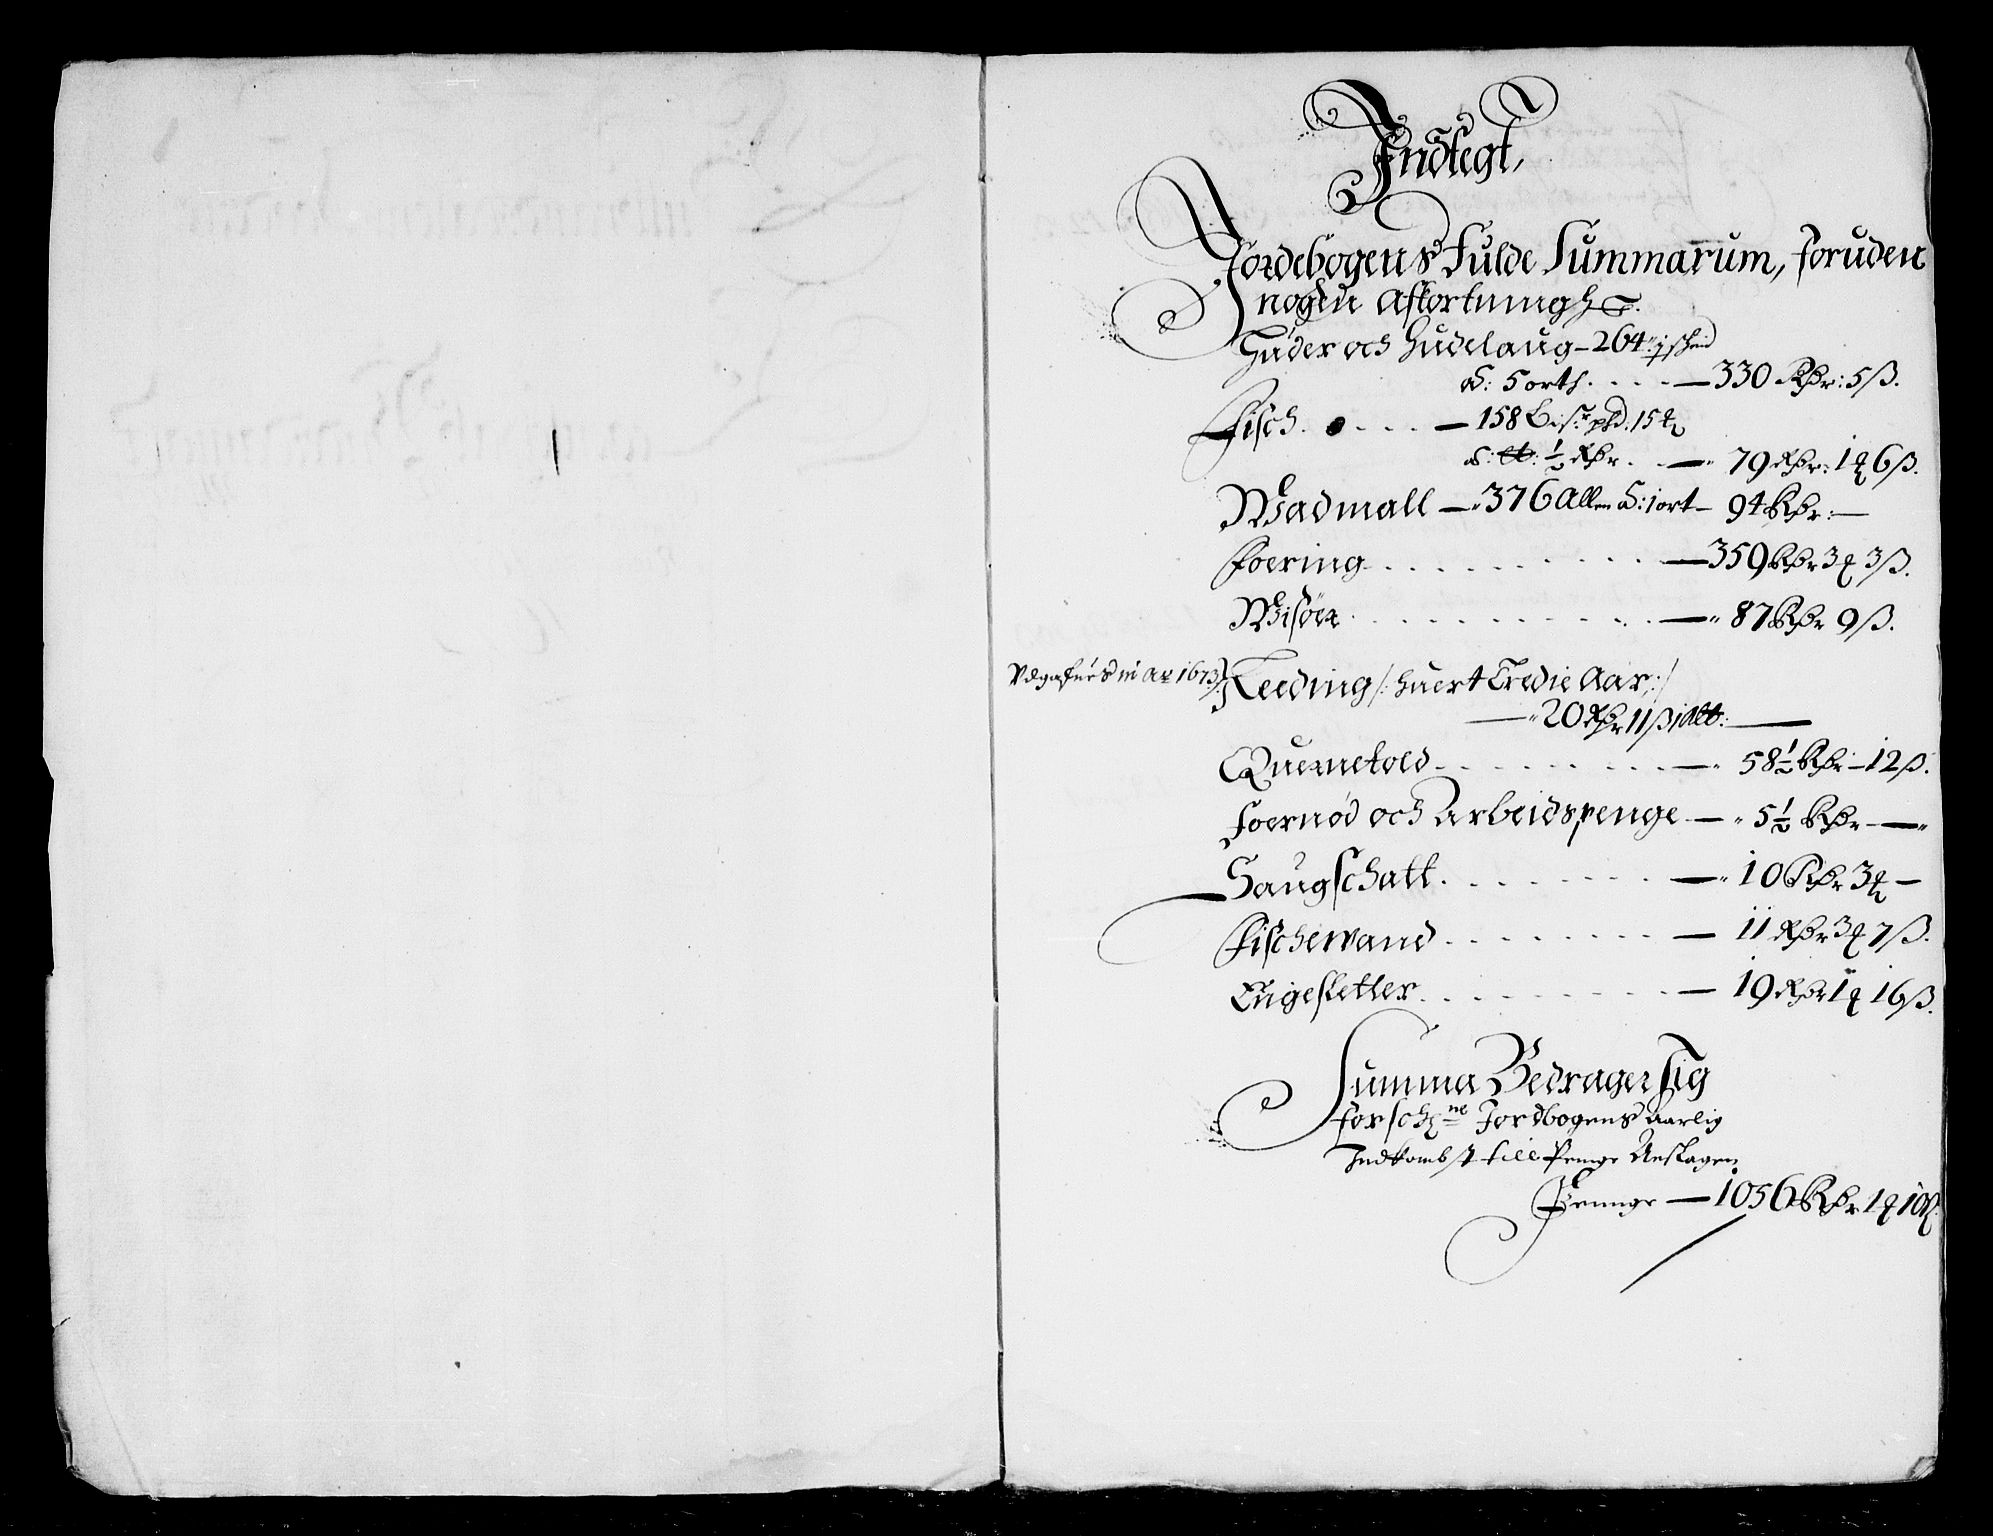 Indtegt,
Jordebogens Fulde Summarum, foruden
nogen Afkortning
Huder och Hudelaug - 264
a: 5 orth. - 330 Rdr: 5 ß.
Fisch. - 158 Bis. pd. 15
a: 1/2 Rdr. - 79 Rdr: 1 6 ß.
Wadmall - 376 Allen a: 1 ort - 94 Rdr: -
Foering - 359 Rdr 3 3 ß.
Wisøer - 87 Rdr 9 ß.
Udgafues in Ao 1673
Leeding /: huert Tredie Aar :/
20 Rdr 11 ß
Quernetold - 58 1/2 Rdr - 12 ß.
Foernød och Arbeidspenge - 5 1/2 Rdr -
Saugschatt. - 10 Rdr 3 -
Fischewand - 11 Rdr 3 7 ß.
Engesletter. - 19 Rdr 1 16 ß.
Summa Bedrager sig
forschne Jordbogens Aarlig
Indkombst till Penge Anslagen
Penge - 1056 Rdr 1 10 ß.